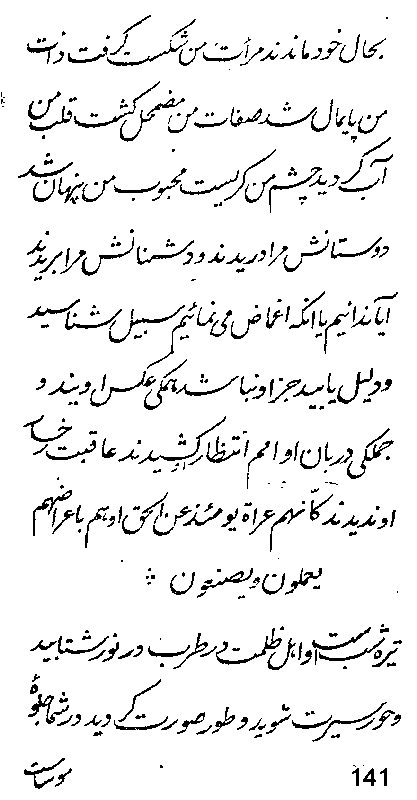 بحال خود ماندند مرأت من شکست گرفت ذات
من پایمال شد صفات من مضمحل گشت قلب من
آب گردید چشم من گریست محبوب من پنهان شد
دوستانش مرا دریدند و دشمنانش مرا بریدند
آیا ندانیم یا انکه اغماض می نمائیم سبیل شناسید
و دلیل یابید جز او نباشد همکی عکس اویند و
جملکی دربان او امم انتظار کشیدند عاقبت رخسار
او ندیدند کانهم عراة یومئذ عن الحق او هم باعراضهم
یعملون و یصنعون
تیره شب است و اهل ظلمت در طرب در نور شتابید
و حور سیرت شوید و طور صورت کردید در شما جلوهٔ
موسی است
141